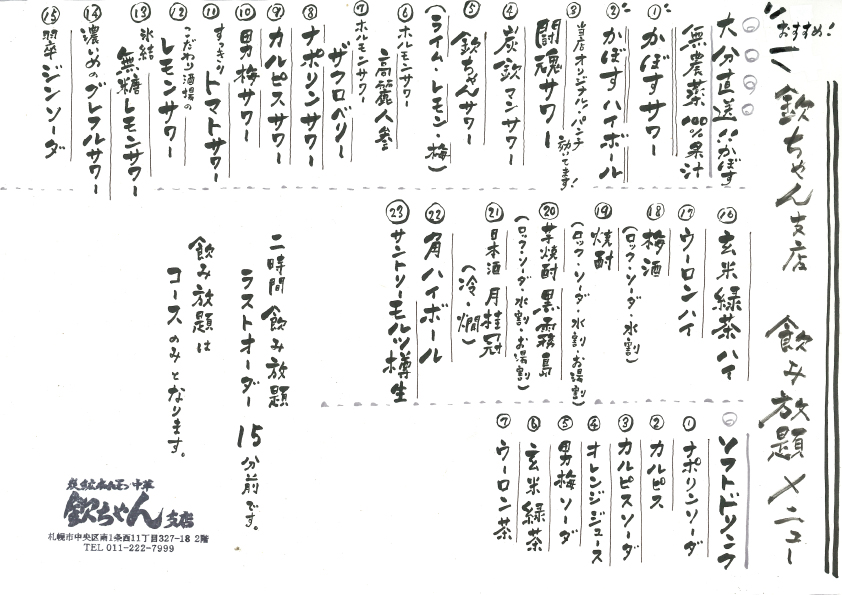 欽ちゃん支店 飲み放題メニュー
おすすめ!
大分直送かぼす
無農薬100%果汁
① かぼすサワー
② かぼすハイボール
③ 当店オリジナル・パンチ効いてます!
闘魂サワー
④ 炭欽マンサワー
⑤ 欽ちゃんサワー
(ライム・レモン・梅)
⑥ ホルモンサワー
高麗人参
⑦ ホルモンサワー
ザクロベリー
⑧ ナポリンサワー
⑨ カルピスサワー
⑩ 男梅サワー
⑪ すっきりトマトサワー
⑫ こだわり酒場の
レモンサワー
⑬ 氷結
無糖レモンサワー
⑭ 濃いめのグレフルサワー
⑮ 翠ジンソーダ
⑯ 玄米緑茶ハイ
⑰ ウーロンハイ
⑱ 梅酒
(ロック・ソーダ・水割)
⑲ 焼酎
(ロック・ソーダ・水割・お湯割)
⑳ 芋焼酎 黒霧島
(ロック・ソーダ・水割・お湯割)
㉑ 日本酒 月桂冠
(冷・燗)
㉒ 角ハイボール
㉓ サントリーモルツ樽生
ソフトドリンク
① ナポリンソーダ
② カルピス
③ カルピスソーダ
④ オレンジジュース
⑤ 男梅ソーダ
⑥ 玄米緑茶
⑦ ウーロン茶
二時間飲み放題
ラストオーダー15分前です。
飲み放題は
コースのみとなります。
欽ちゃん支店
札幌市中央区南1条西11丁目327-18 2階
TEL 011-222-7999